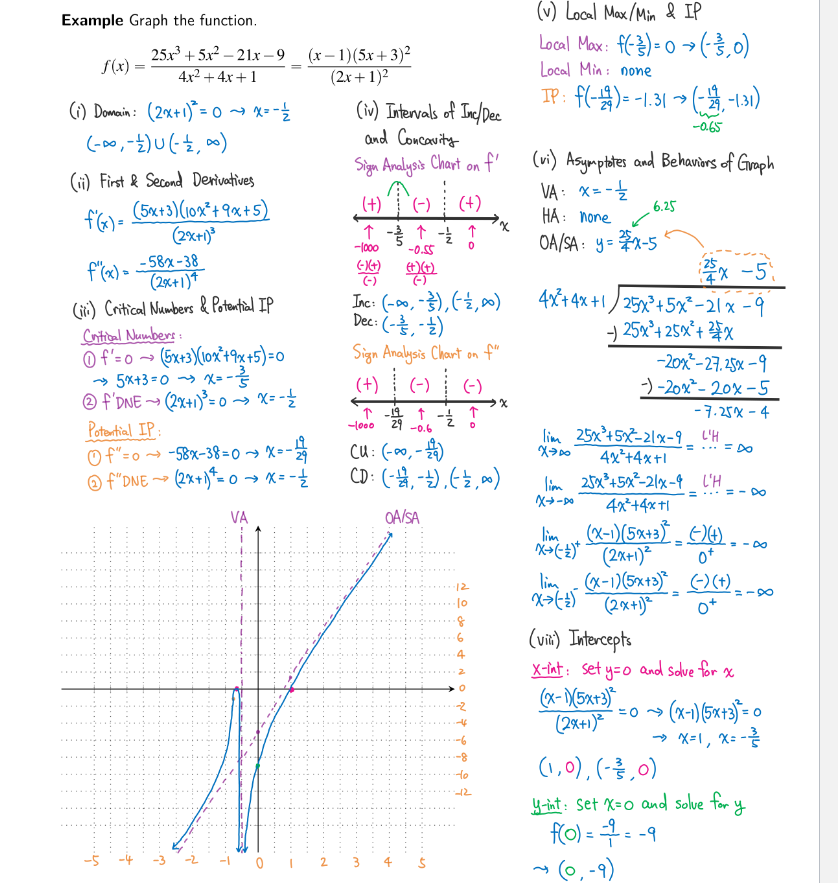 Example Graph the function.
f(x) = (25x³ + 5x² − 21x − 9)/(4x² + 4x + 1) = (x − 1)(5x + 3)²/(2x + 1)²
(i) Domain: (2x+1)² = 0 → x = -1/2
(-∞, -1/2) ∪ (-1/2, ∞)
(ii) First & Second Derivatives
f'(x) = (5x+3)(10x²+9x+5)/(2x+1)³
f"(x) = (-58x-38)/(2x+1)⁴
(iii) Critical Numbers & Potential IP
Critical Numbers:
① f'=0 → (5x+3)(10x²+9x+5)=0
→ 5x+3=0 → x=-3/5
② f' DNE → (2x+1)³=0 → x=-1/2
Potential IP:
① f"=0 → -58x-38=0 → x=-19/29
② f" DNE → (2x+1)⁴=0 → x=-1/2
(iv) Intervals of Inc/Dec
and Concavity
Sign Analysis Chart on f'
(+) (-) (+)
x
-3/5 -1/2
-1000 -0.55 0
(-)(+)/(-) (+)(+)/(-)
Inc: (-∞, -3/5), (-1/2, ∞)
Dec: (-3/5, -1/2)
Sign Analysis Chart on f"
(+) (-) (-)
x
-19/29 -1/2
-1000 -0.6 0
CU: (-∞, -19/29)
CD: (-19/29, -1/2), (-1/2, ∞)
(v) Local Max/Min & IP
Local Max: f(-3/5)=0 → (-3/5, 0)
Local Min: none
IP: f(-19/29)= -1.31 → (-19/29, -1.31)
-0.65
(vi) Asymptotes and Behaviors of Graph
VA: x=-1/2
HA: none
6.25
OA/SA: y=25/4x-5
25/4x -5
4x²+4x+1 25x³+5x²-21x-9
-) 25x³+25x²+25/4x
-20x²-27.25x-9
-) -20x²-20x-5
-7.25x-4
lim x→∞ (25x³+5x²-21x-9)/(4x²+4x+1) L'H = ... = ∞
lim x→-∞ (25x³+5x²-21x-9)/(4x²+4x+1) L'H = ... = -∞
lim x→(-1/2)⁺ (x-1)(5x+3)²/(2x+1)² = (-)(+)/0⁺ = -∞
lim x→(-1/2)⁻ (x-1)(5x+3)²/(2x+1)² = (-)(+)/0⁺ = -∞
(viii) Intercepts
x-int: set y=0 and solve for x
(x-1)(5x+3)²/(2x+1)² = 0 → (x-1)(5x+3)²=0
→ x=1, x=-3/5
(1,0), (-3/5, 0)
y-int: set x=0 and solve for y
f(0) = -9/1 = -9
→ (0, -9)
VA OA/SA
12
10
8
6
4
2
0
-2
-4
-6
-8
-10
-12
-5 -4 -3 -2 -1 0 1 2 3 4 5